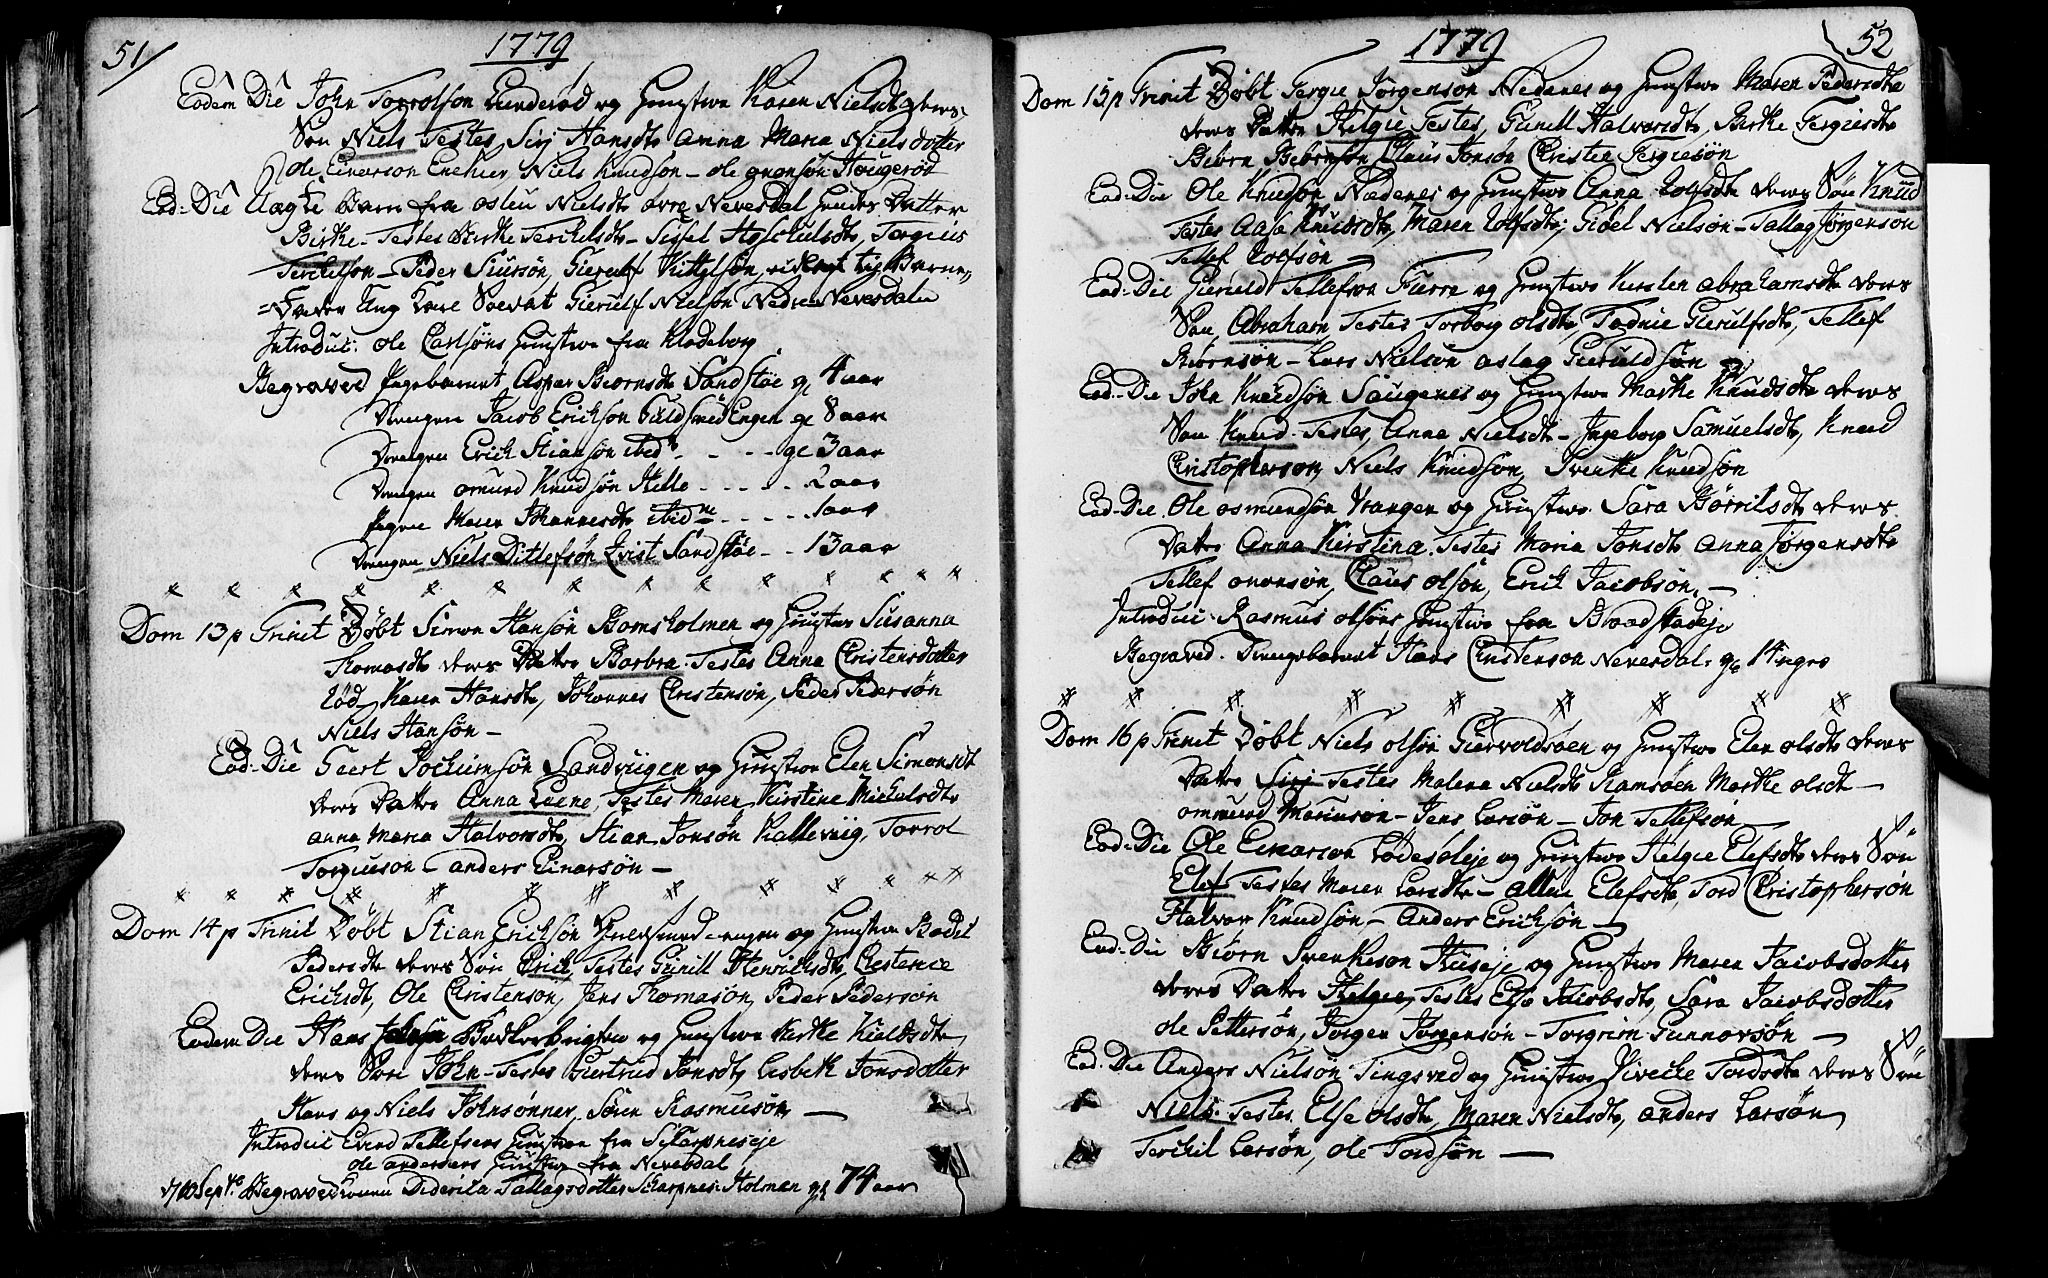 51/
1779
Eodem Die John Torrolsøn Lunderød og Hustroe Karen Nielsdt deres
Søn Niels Testes Siri Hansdt Anna Maria Nielsdotter
Ole Einarson Niels Knudsøn – Ole Hougerød
Eod: Die Uægte Barn fra Aslou Nielsdt øvre Neversdal hendes Datter
Birke – Testes Birke Terchelsdt – Sissel Torgius
Terchelsøn – Peder Siursøn, Gierulf Kittelsøn, til Barne
Fader Ung Karl Soldat Gierulf Nielsøn Nedre Neversdalen
Introduc: Ole Carlsøns Hustroe fra Klodeborg
Begraved Pigebarnet Aspor Biørnsdt Sandstøe gl 4 aar
Drengen Jacob Erichsøn Guldsmed Engen gl 8 aar
Drengen Erich Stiansøn ibid - - - gl 3 aar
Drengen Omund Knudsøn Helle - - - - 2 aar
Pigen Maren Johannesdt ibidm - - - - 1 aar
Drengen Niels Ditlefsøn Qvist Sandstøe - - 13 aar
Dom 13 p Trinit Døbt Simon Hansøn Bomsholmen og Hustroe Susanna
Thomasdt deres Datter Barbra – Testes Anna Christensdotter
Lød Karen Hansdt, Johannes Christensøn, Peder Pedersøn
Niels Hansøn –
Eod: Die Geert Jochumsøn Sandviigen og Hustroe Elen Simonsdt
deres Datter Anna Lucne, Testes Maren Kirstine Michelsdt
Anna Maria Halvorsdt, Stian Jonsøn Kalleviig, Torrol
Torgiuson – Anders Einarsøn –
Dom 14 p Trinit Døbt Stian Erichsøn Guldsmed-engen og Hustroe Bodil
Pedersdt deres Søn Erich, Testes Gunill Henrichsdt, Chestence
Erichsdt, Ole Christenson, Jens Thomasøn, Peder Pedersøn
Eodem Die Hans og Hustroe Kirke Kieldsdt
deres Søn John – Testes Giertrud Jonsdt Lisbeth Jonsdotter
Hans og Niels Johnsønner, Søren Rasmusøn –
Introduc Evind Tellefsens Hustroe fra Skarpneseje
Ole Andersens Hustroe fra Neversdal
d/10 Sept. Begraved Konen Diderika Tallagsdotter Skarpnes-Holmen gl 74 aar
52
1779
Dom 15 p Trinit Døbt Tergie Jørgenson Nedenes og Hustroe Maren Pedersdt
deres Datter Helgie Testes, Gunill Halvorsdt, Birke Tergiesdt
Biørn Biørnsøn Claus Jonsøn Christen Tergiesøn
Eod: Die Ole Knudsøn Nedenes og Hustroe Anna Rolfsdt deres Søn Knud
Testes Aase Knudsdt, Maren Rolfsdt, Giøel Nielsøn – Tallag Jørgenson
Tellef Rolfsøn –
Eod: Die Gieruld Tellefson Fierre og Hustroe Kirsten Abrahamsdt deres
Søn Abraham Testes Torborg Olsdt, Todnie Gierulfsdt, Tellef
Biørnsøn – Lars Nielsøn Aslag Gieruldsøn
Eod: Die John Knudsøn Saugenes og Hustroe Marthe Knudsdt deres
Søn Knud – Testes, Anne Nielsdt – Ingeborg Samuelsdt, Knud
Christopherson, Niels Knudsøn, Svenke Knudsøn
Eod: Die Ole Osmundsøn Vrangen og Hustroe Sara Børrilsdt deres
Datter Anna Kirstina. Testes Maria Jonsdt Anna Jørgensdt
Tellef Onensøn, Claus Olsøn, Erich Jacobsøn. –
Introduc: Rasmus Olsøns Hustroe fra Braadstadeje
Begraved. Drengebarnet Hans Christenson Neversdal gl 14 ugr
Dom 16 p Trinit Døbt Niels Olsøn Giervoldsøen og Hustroe Elen Olsdt deres
Datter Siri – Testes Malena Nielsdt Ramsøen Marthe Olsdt –
Omund – Jens Larsøn – Jon Tellefsøn
Eod: Die Ole Einarson Lødesøleje og Hustroe Helgie Elefsdt deres Søn
Elef Testes Maren Larsdt – Allne Elefsdt, Tord Christophersøn
Halvor Knudsøn – Anders Erichsøn –
Eod: Die Biørn Svenkeson Huseje og Hustroe Maren Jacobsdotter
deres Datter Helgie, Testes Else Jacobsdt, Sara Jacobsdotter
Ole Pettersøn, Jørgen Jørgensøn – Torgrim Gunnorsøn –
Eod: Die Anders Nielsøn Tingsved og Hustroe Vivecke Tordsdt deres Søn
Niels Testes. Else Olsdt, Maren Nielsdt, Anders Larsøn
Terchil Larsøn, Ole Tordsøn –